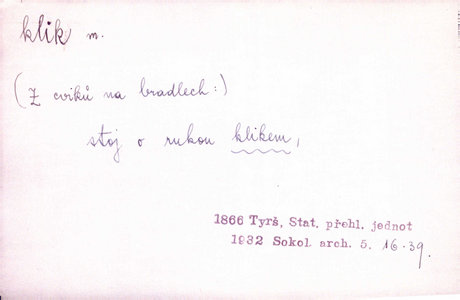 klik m.
(Z cviků na bradlech:)
stoj o rukou klikem,
1866 Tyrš, Stat. přehl. jednot
1932 Sokol. arch. 5. 16-39.